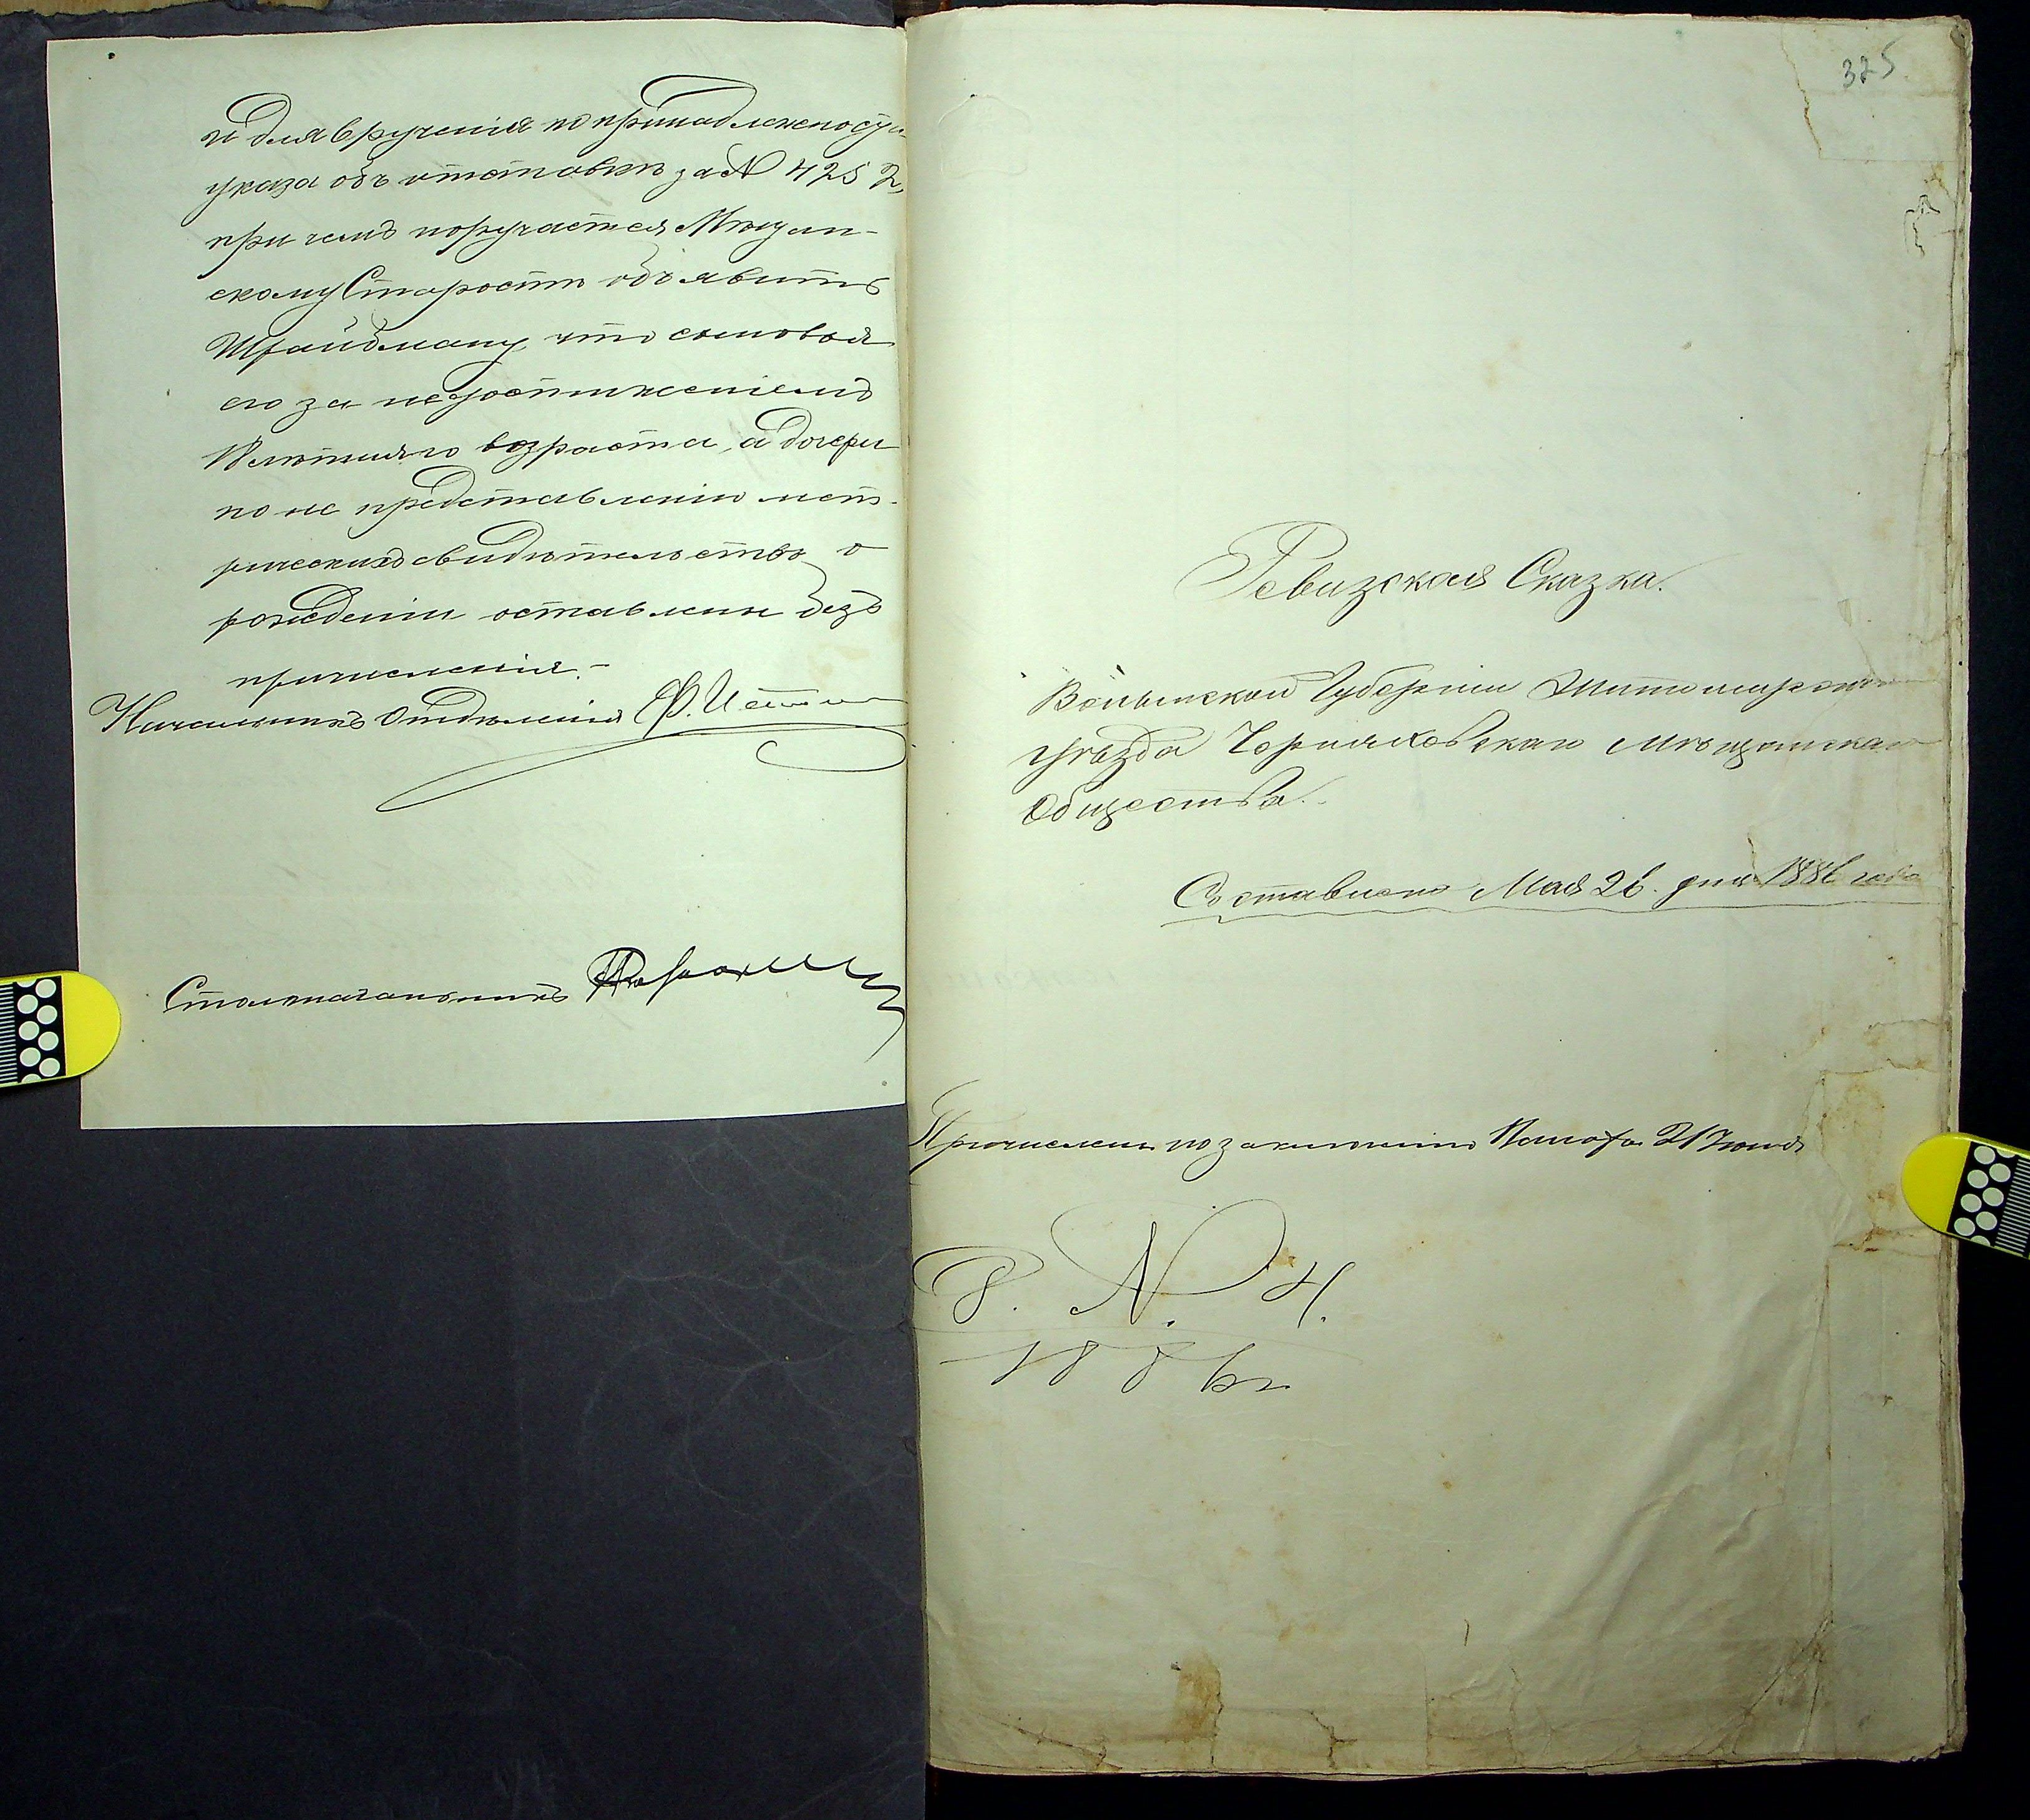 и для врученія по принадлежности
указа объ отставкѣ за № 4252,
при чемъ поручается Мѣщан-
скому Старостѣ объявить
Шрайдману, что сыновья
его за недостиженіемъ
лѣтняго возраста, а дочери
по не представленію мет-
рическихъ свидѣтельствъ о
рожденіи оставлены безъ
причисленія.-
Начальникъ Отдѣленія
Столоначальникъ
325
Ревизская Сказка.
Волынской Губерніи Житомирскаго
уѣзда Черняховскаго Мѣщанскаго
Общества.
Составлена Мая 26. дня 1886 года
Причислены по заключенію Палаты 21 Іюня
Р. №. 4.
1886 г.